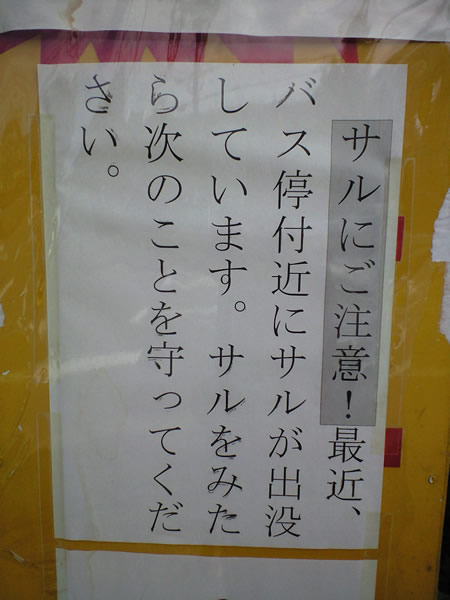 サルにご注意！最近、
バス停付近にサルが出没
しています。サルをみた
ら次のことを守ってくだ
さい。